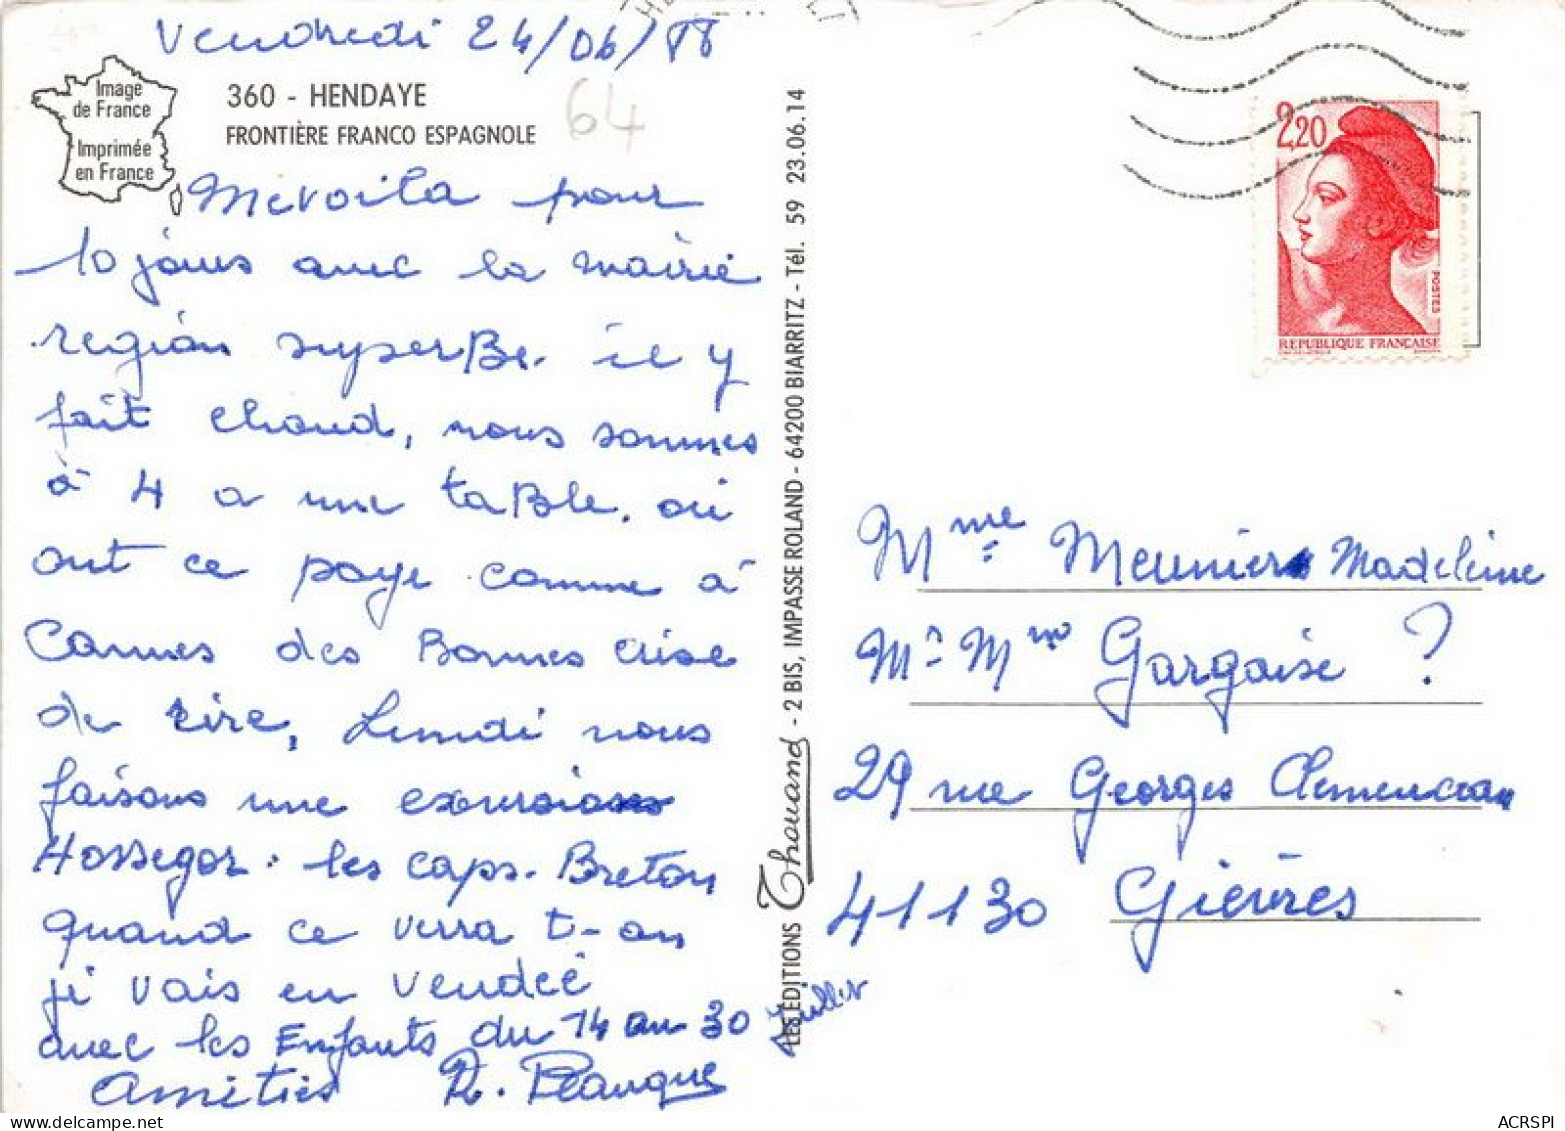 Vendredi 24/06/88
Image
de France
Imprimée
en France
360 - HENDAYE
FRONTIÈRE FRANCO ESPAGNOLE
64
Mevoila pour
10 jours avec la mairie
region superBe. il y
fait chaud, nous sommes
à 4 a une taBle. où
ont ce paye comme à
Cannes des Bonnes crise
de rire, Lundi nous
faisons une excursion
Hossegor. les caps. Breton
quand ce verra t-on
je vais en Vendeé
avec les Enfants du 14 au 30 Juillet
Amitiés R. Planque
LES EDITIONS Thouand - 2 BIS, IMPASSE ROLAND - 64200 BIARRITZ - Tél. 59 23.06.14
2,20
POSTES
REPUBLIQUE FRANÇAISE
Mme Meunier Madeleine
Mr Mme Gargaise ?
29 rue Georges Clemenceau
41130 Gièvres
ACRSPI